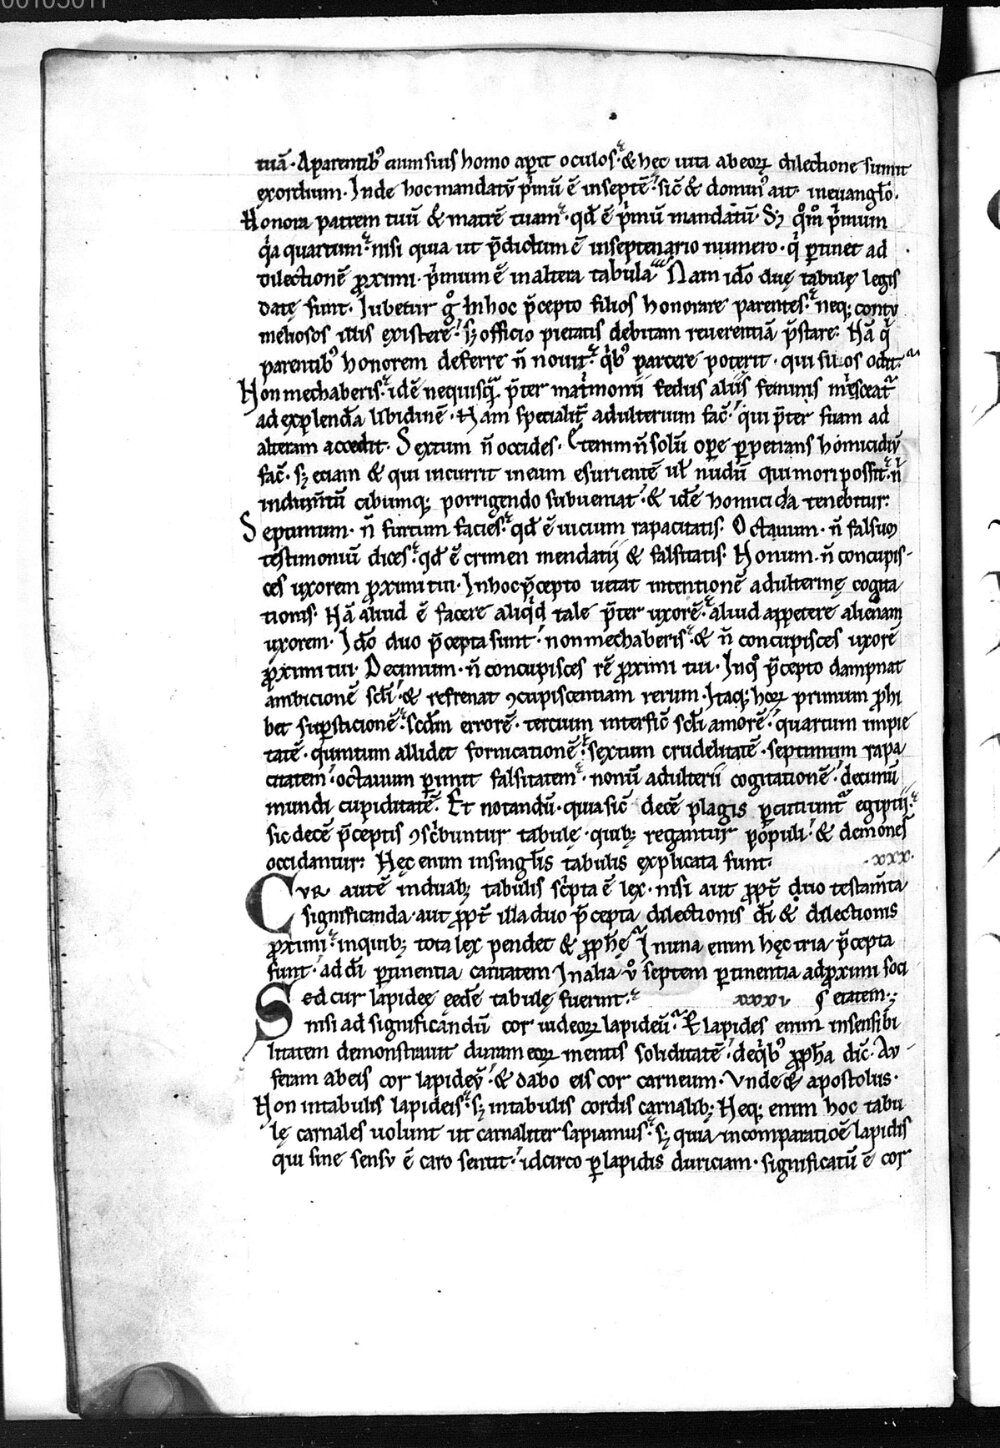 tuā. A parentib; eum suis homo aperit oculos. & hęc uita ab eoꝝ dilectione sumit
exordium. Inde hoc mandatū p̄mū ē in septē. sic̄ & domin᾽ ait in euanglō.
Honora patrem tuū & matrē tuam. qd̄ ē p̄mū mandatū. Sꝫ qͦm̊ p̄mum
qͣ quartum. nisi quia ut p̄dictum ē in septenario numero. qͥ ꝑtinet ad
dilectionē ꝓximi. p̄mum ē in altera tabula. Nam idō duę tabulę legis
datę sunt. Iubetur gͦ in hoc p̄cepto filios honorare parentes. neq; contu
meliosos illis existerē. sꝫ officio pietatis debitam reuerentiā p̄stare. Nā qͥ
parentib᾽ honorem deferre n̄ nouit. qͥb᾽ parcere poterit. qui suos odit.
Non mechaberis. idē nequisqͣ p̄ter matͥmonii fedus aliis feminis misceatᷣ
ad explendā libidinē. Nam specialit̄ adulterium fac̄. qui p̄ter suam ad
alteram accedit. Sextum n̄ occides. Etenim n̄ solū oꝑe ꝑpetrans homicidiū
fac̄. sꝫ eciam & qui incurrit in eum esurientē ul̄ nudū qui mori possit. n̄
indum̄tū cibumq; porrigendo subueniat. & idē homicida tenebitur.
Septimum. n̄ furtum facies. qd̄ ē uicium rapacitatis. Octauum. n̄ falsum
testimoniū dices. qd̄ ē crimen mendatii & falsitatis. Nonum. n̄ concupis-
ces uxorem ꝓximi tui. In hoc p̄cepto uetat intentionē adulterinę cogita
tionis. Nā aliud ē facere aliqͥd tale p̄ter uxorē. aliud appetere alienam
uxorem. Idō duo p̄cepta sunt. non mechaberis. & n̄ concupisces uxorē
ꝓximi tui. Decimum. n̄ concupisces rē ꝓximi tui. In qͦ p̄cepto dampnat
ambicionē scl̄i. & refrenat ꝯcupiscentiam rerum. Itaq; hoꝝ primum ꝓhi
bet suꝑsticionē. scdm̄ errorē. tercium interfic̄ scl̄i amorē. quartum impie
tatē. quintum allidet fornicationē. sextum crudelitatē. septimum rapa
citatem. octauum ꝑimit falsitatem. nonū adulterii cogitationē. decimū
mundi cupiditatē. Et notandū. quia sic̄ decē plagis ꝑcutiuntᷣ egiptii.
sic decē p̄ceptis ꝯscͥbuntur tabulę. quib; regantur populi. & demones
occidantur. Hęc enim in singl̄is tabulis explicata sunt. .xxx.
CVR autē in duab; tabulis scͥpta ē lex. nisi aut ꝓpt̄ duo testam̄ta
significanda. aut ꝓpt̄ illa duo p̄cepta dilectionis dī & dilectionis
ꝓximi. in quib; tota lex pendet & ꝓphę. In una enim hęc tria p̄cepta
sunt. ad dī ꝑtinentia caritatem. In alia ů septem ꝑtinentia ad ꝓximi soci
Sed cur lapideę eedē tabulę fuerunt. xxxi ¶ etatem.
nisi ad significandū cor iudeoꝝ lapideū. Et lapides enim insensibi
litatem demonstrauit duram eoꝝ mentis soliditatē. de qͥb᾽ ꝓpha dic̄. Au-
feram ab eis cor lapideū. & dabo eis cor carneum. Vnde & apostolus.
Non in tabulis lapideis. sꝫ in tabulis cordis carnalib;. Neq; enim hoc tabu
lę carnales uolunt ut carnaliter sapiamus. sꝫ quia in comparatioē lapidis
qui sine sensu ē caro sentit. idcirco ꝑ lapidis duriciam. significatū ē cor